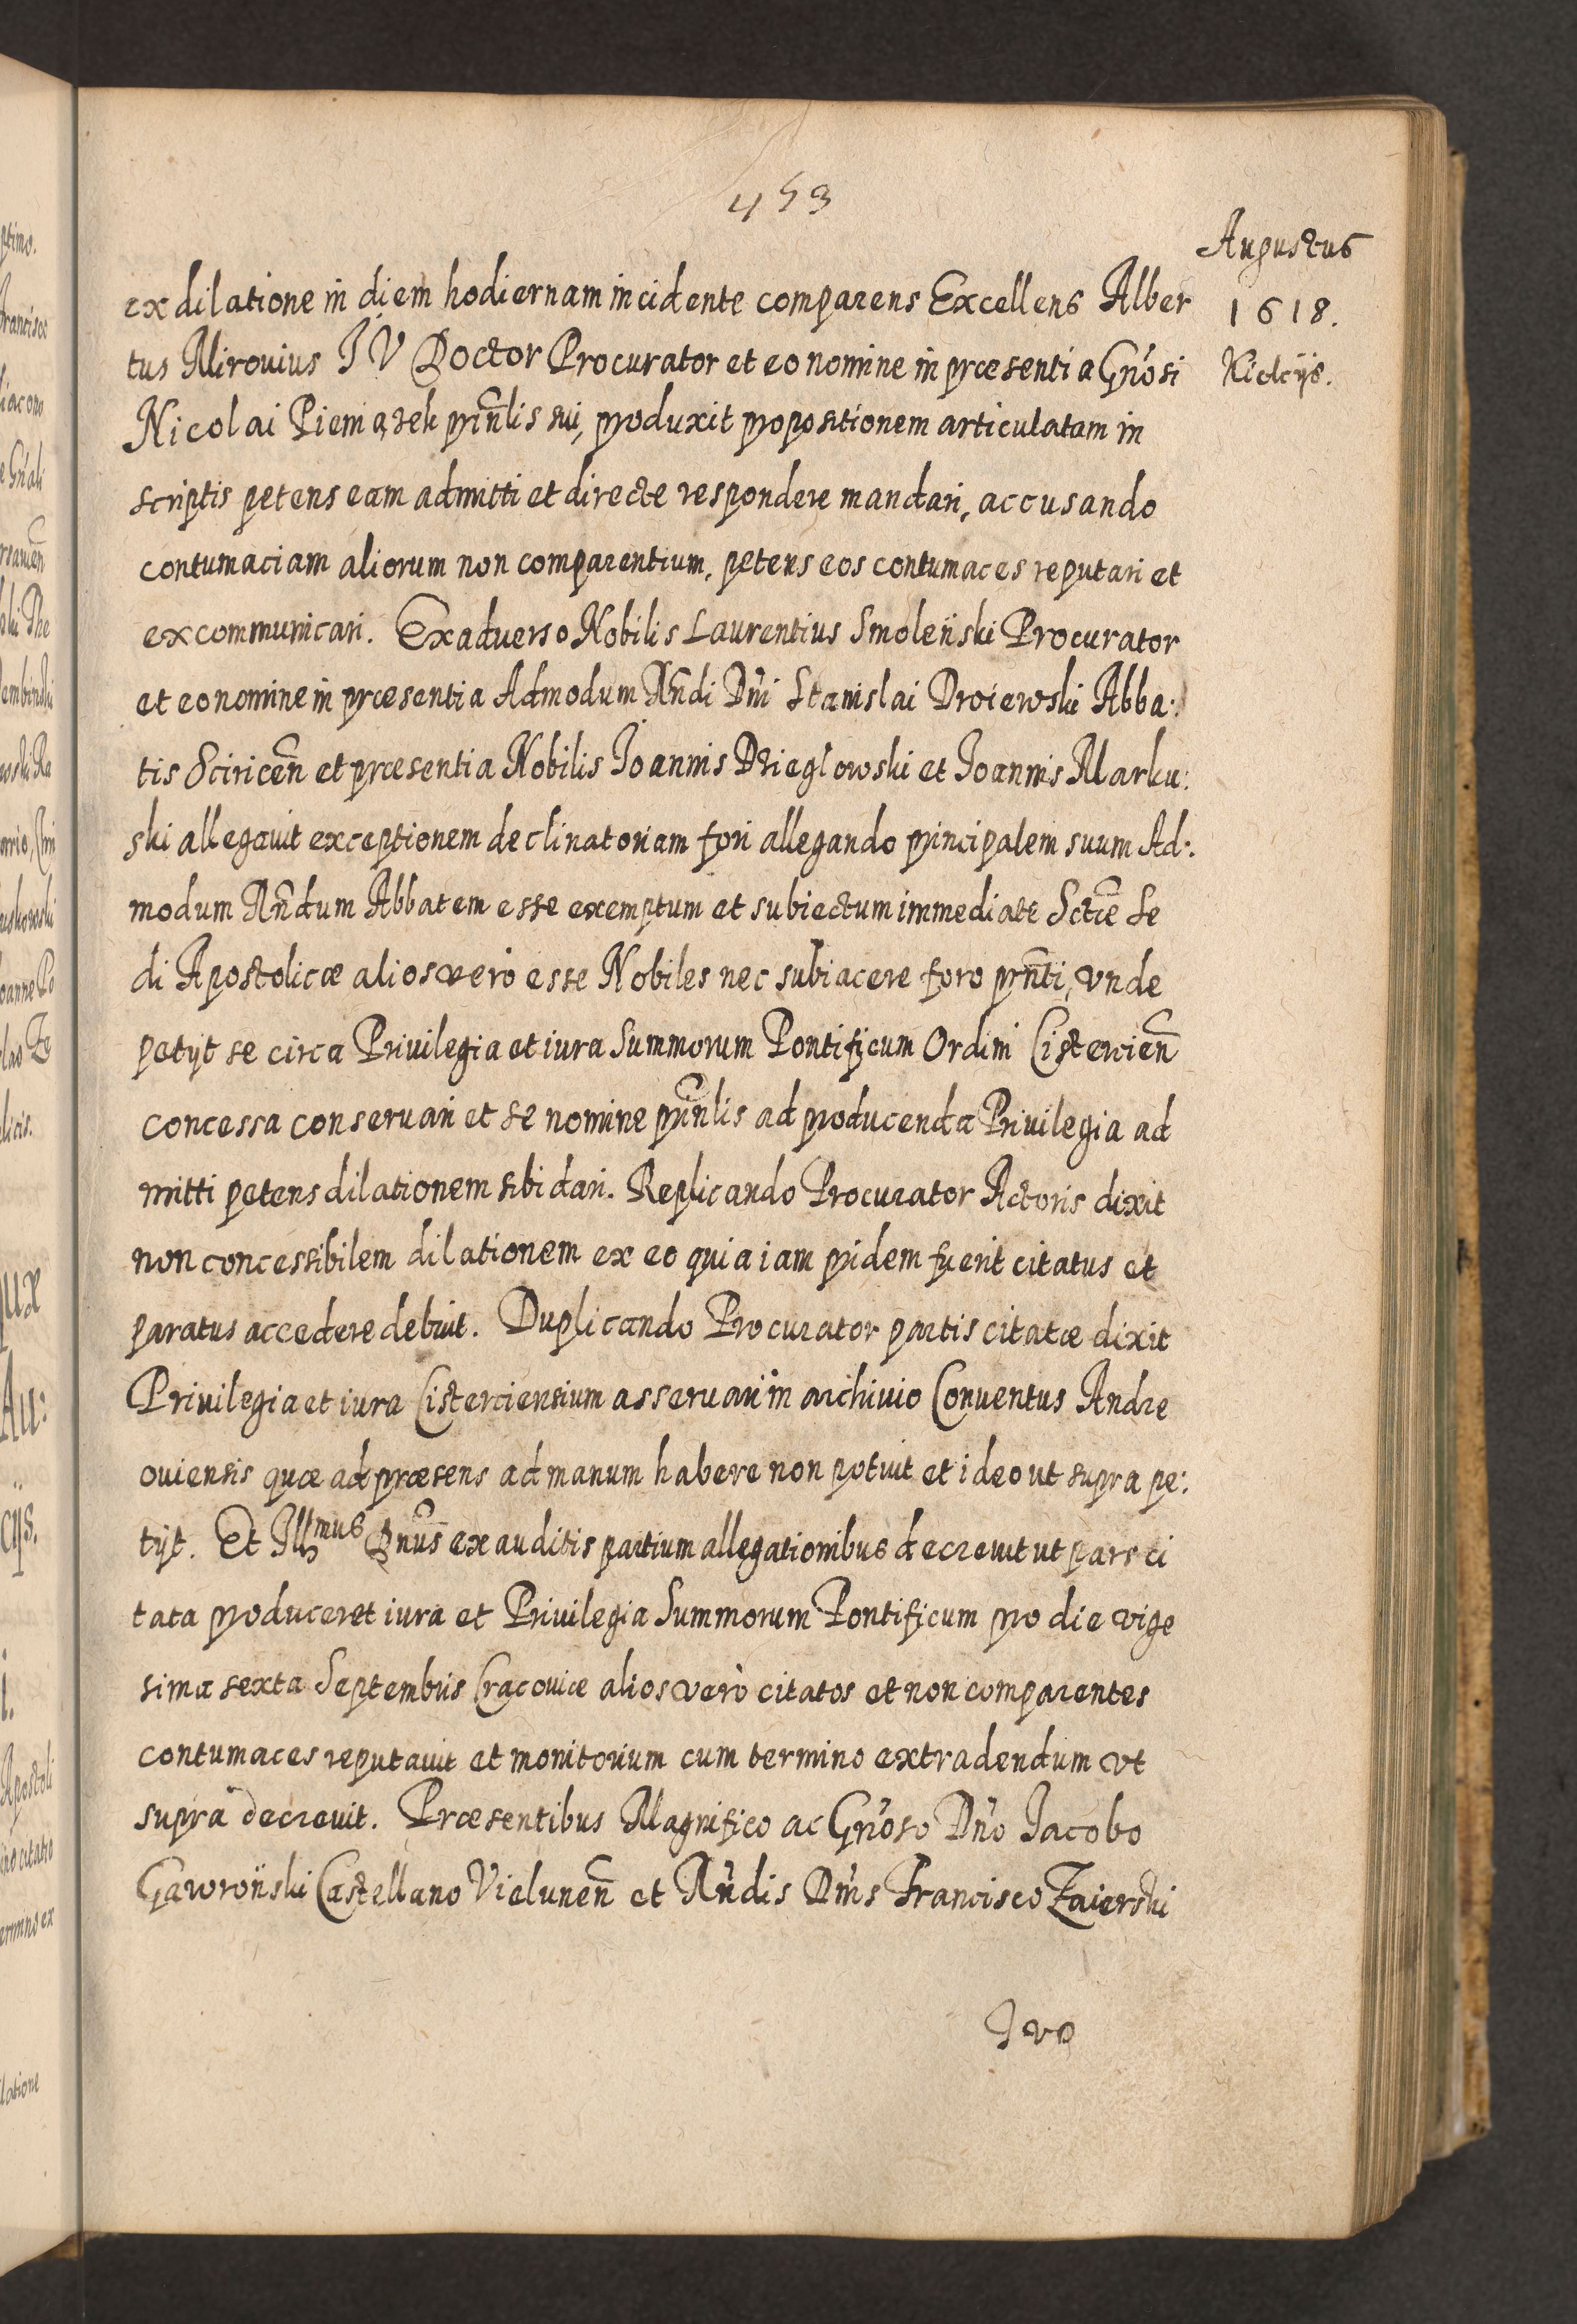 453
Augustus
1618.
Kielcijs.
ex dilatione in diem hodiernam incidente comparens Excellens Alber
tus Mirouius I V Doctor Procurator et eo nomine in præsentia Gnosi
Nicolai Pieniązek prinlis sui, produxit propositionem articulatam in
scriptis petens eam admitti et directe respondere mandari, accusando
contumaciam aliorum non comparentium, petens eos contumaces reputari et
excommunicari. Ex aduerso Nobilis Laurentius Smoleński Procurator
et eo nomine in præsentia Admodum Rndi Dni Stanislai Droiewski Abba:
tis Sciricen et præsentia Nobilis Joannis Dzieglowski et Joannis Marku:
ski allegauit exceptionem declinatoriam fori allegando principalem suum Ad:
modum Rndum Abbatem esse exemptum et subiectum immediate Sctæ Se
di Apostolicæ alios vero esse Nobiles nec subiacere foro prnti, vnde
petijt se circa Priuilegia et iura Summorum Pontificum Ordini Cistercien
concessa conseruari et se nomine prinlis ad producenda Priuilegia ad
mitti petens dilationem sibi dari. Replicando Procurator Actoris dixit
non concessibilem dilationem ex eo quia iam pridem fuerit citatus et
paratus accedere debuit. Duplicando Procurator partis citatæ dixit
Priuilegia et iura Cisterciensium asseruari in archiuio Conuentus Andre
ouiensis quæ ad præsens ad manum habere non potuit et ideo ut supra pe:
tijt. Et Illmus Dnus ex auditis partium allegationibus decreuit ut pars ci
tata produceret iura et Priuilegia Summorum Pontificum pro die vige
sima sexta Septembris Cracouiæ alios verò citatos et non comparentes
contumaces reputauit et monitorium cum termino extradendum vt
supra decreuit. Præsentibus Magnifico ac Gnoso Dno Jacobo
Gawroński Castellano Vielunen et Rndis Dnis Francisco Zaierski
Ivo